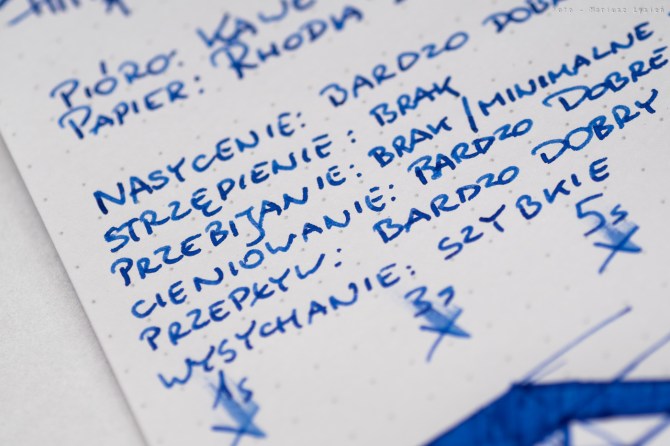 PIÓRO: KAWE
PAPIER: RHODIA
NASYCENIE: BARDZO DOB
STRZĘPIENIE: BRAK
PRZEBIJANIE: BRAK/MINIMALNE
CIENIOWANIE: BARDZO DOBRE
PRZEPŁYW: BARDZO DOBRY
WYSYCHANIE: SZYBKIE
1s 3s 5s